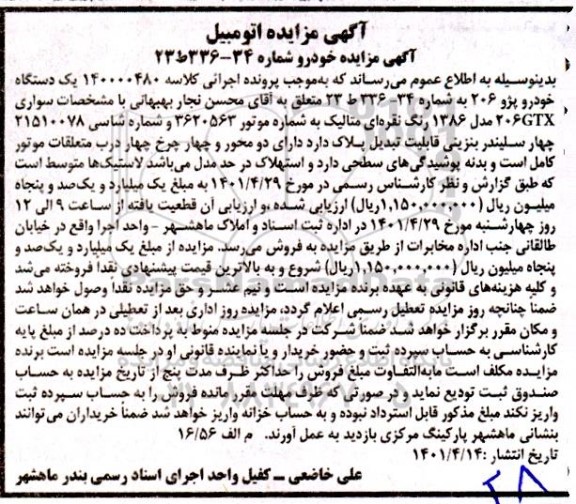 آگهی مزایده اتومبیل
آگهی مزایده خودرو شماره ۳۴-۳۳۶ط۲۳
بدینوسیله به اطلاع عموم می‌رساند که به‌موجب پرونده اجرائی کلاسه ۱۴۰۰۰۰۴۸۰ یک دستگاه
خودرو پژو ۲۰۶ به شماره ۳۴- ۳۳۶ ط ۲۳ متعلق به آقای محسن نجار بهبهانی با مشخصات سواری
۲۰۶GTX مدل ۱۳۸۶ رنگ نقره‌ای متالیک به شماره موتور ۳۶۲۰۵۶۳ و شماره شاسی ۲۱۵۱۰۰۷۸
چهار سلیندر بنزینی قابلیت تبدیل پلاک دارد دارای دو محور و چهار چرخ چهار درب متعلقات موتور
کامل است و بدنه پوشیدگی‌های سطحی دارد و استهلاک در حد مدل می‌باشد لاستیک‌ها متوسط است
که طبق گزارش و نظر کارشناس رسمی در مورخ ۱۴۰۱/۴/۲۹ به مبلغ یک میلیارد و یک‌صد و پنجاه
میلیون ریال (۱,۱۵۰,۰۰۰,۰۰۰ریال) ارزیابی شده ،و ارزیابی آن قطعیت یافته از ساعت ۹ الی ۱۲
روز چهارشنبه مورخ ۱۴۰۱/۴/۲۹ در اداره ثبت اسناد و املاک ماهشهر - واحد اجرا واقع در خیابان
طالقانی جنب اداره مخابرات از طریق مزایده به فروش می‌رسد. مزایده از مبلغ یک میلیارد و یک‌صد و
پنجاه میلیون ریال (۱,۱۵۰,۰۰۰,۰۰۰ریال) شروع و به بالاترین قیمت پیشنهادی نقدا فروخته می‌شد
و کلیه هزینه‌های قانونی به عهده برنده مزایده است و نیم عشر و حق مزایده نقدا وصول خواهد شد
ضمنا چنانچه روز مزایده تعطیل رسمی اعلام گردد، مزایده روز اداری بعد از تعطیلی در همان ساعت
و مکان مقرر برگزار خواهد شد ضمنا شرکت در جلسه مزایده منوط به پرداخت ده درصد از مبلغ پایه
کارشناسی به حساب سپرده ثبت و حضور خریدار و یا نماینده قانونی او در جلسه مزایده است برنده
مزایده مکلف است مابه‌التفاوت مبلغ فروش را حداکثر ظرف مدت پنج از تاریخ مزایده به حساب
صندوق ثبت تودیع نماید و در صورتی که ظرف مهلت مقرر مانده فروش را به حساب سپرده ثبت
واریز نکند مبلغ مذکور قابل استرداد نبوده و به حساب خزانه واریز خواهد شد ضمنا خریداران می‌توانند
بنشانی ماهشهر پارکینگ مرکزی بازدید به عمل آورند. م الف ۱۶/۵۶
تاریخ انتشار :۱۴۰۱/۴/۱۴
علی خاضعی – کفیل واحد اجرای اسناد رسمی بندر ماهشهر